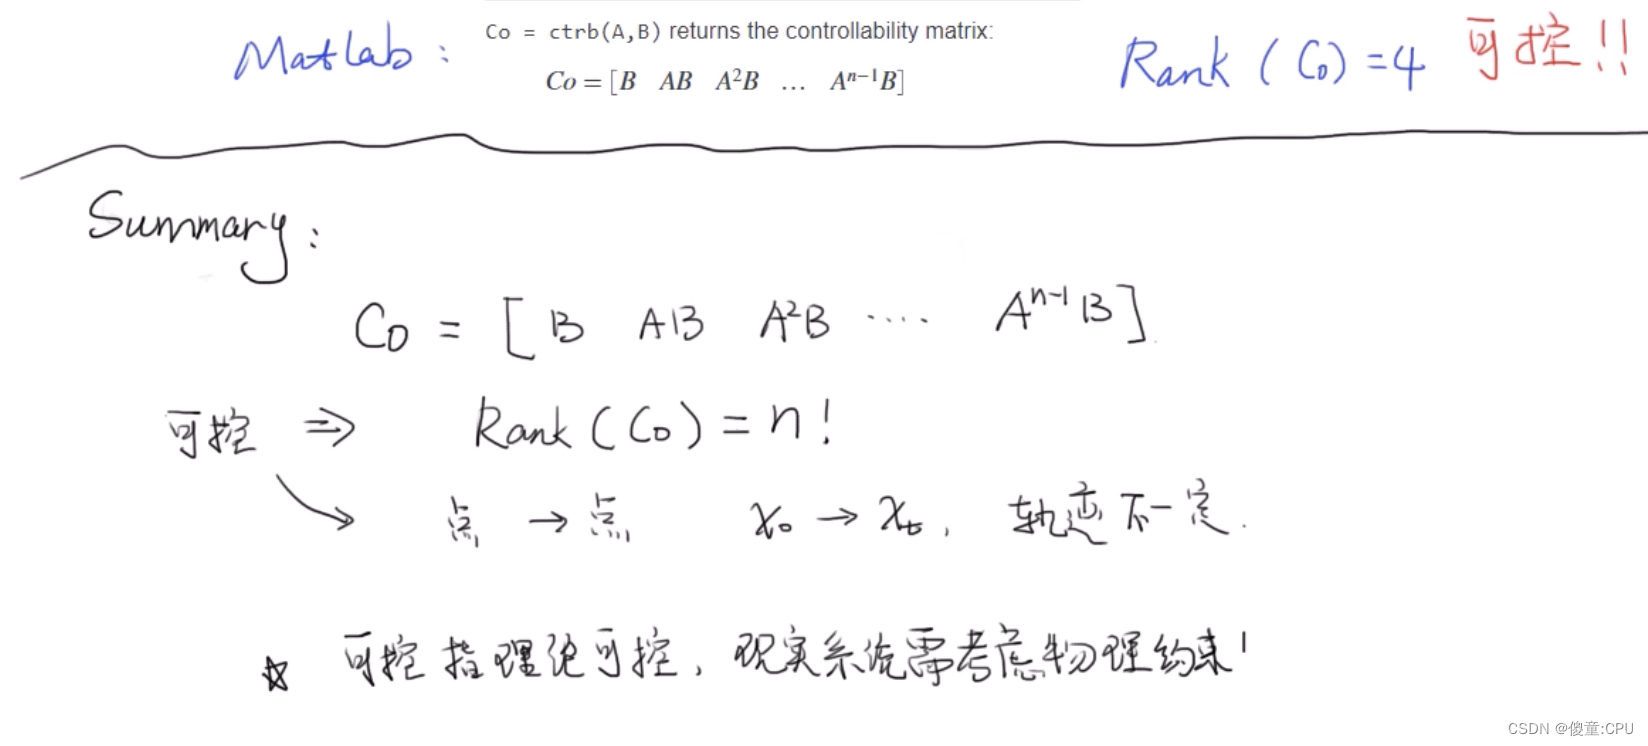 Matlab:
Co = ctrb(A,B) returns the controllability matrix:
Co = [B AB A²B … Aⁿ⁻¹B]
Rank (Co) = 4 可控!!
Summary:
Co = [ B AB A²B ···· Aⁿ⁻¹B ]
可控 ⇒ Rank (Co) = n!
点 → 点 x₀ → xₜ, 轨迹不一定.
☆ 可控指理论可控, 现实系统需考虑物理约束!
CSDN @傻童:CPU